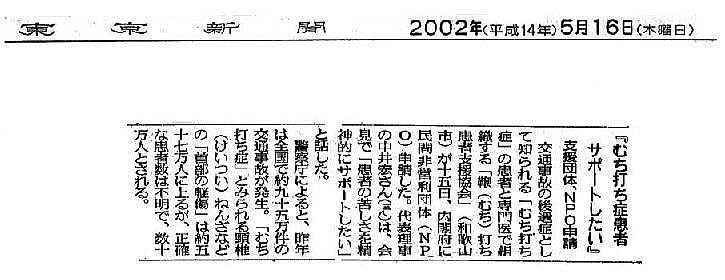 東京新聞 2002年(平成14年)5月16日(木曜日)
『むち打ち症患者
サポートしたい』
支援団体、NPO申請
交通事故の後遺症とし
て知られる「むち打ち
症」の患者と専門医で組
織する「鞭(むち)打ち
患者支援協会」(和歌山
市)が十五日、内閣府に
民間非営利団体(NP
O)申請した。代表理事
の中井宏さん()は、会
見で「患者の苦しさを精
神的にサポートしたい」
と話した。
警察庁によると、昨年
は全国で約九十五万件の
交通事故が発生。「むち
打ち症」とみられる頸椎
(けいつい)ねんざなど
の「首部の軽傷」は約五
十七万人に上るが、正確
な患者数は不明で、数十
万人とされる。